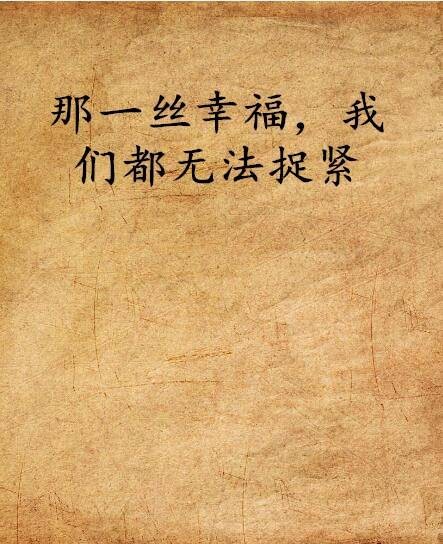 那一丝幸福，我
们都无法捉紧